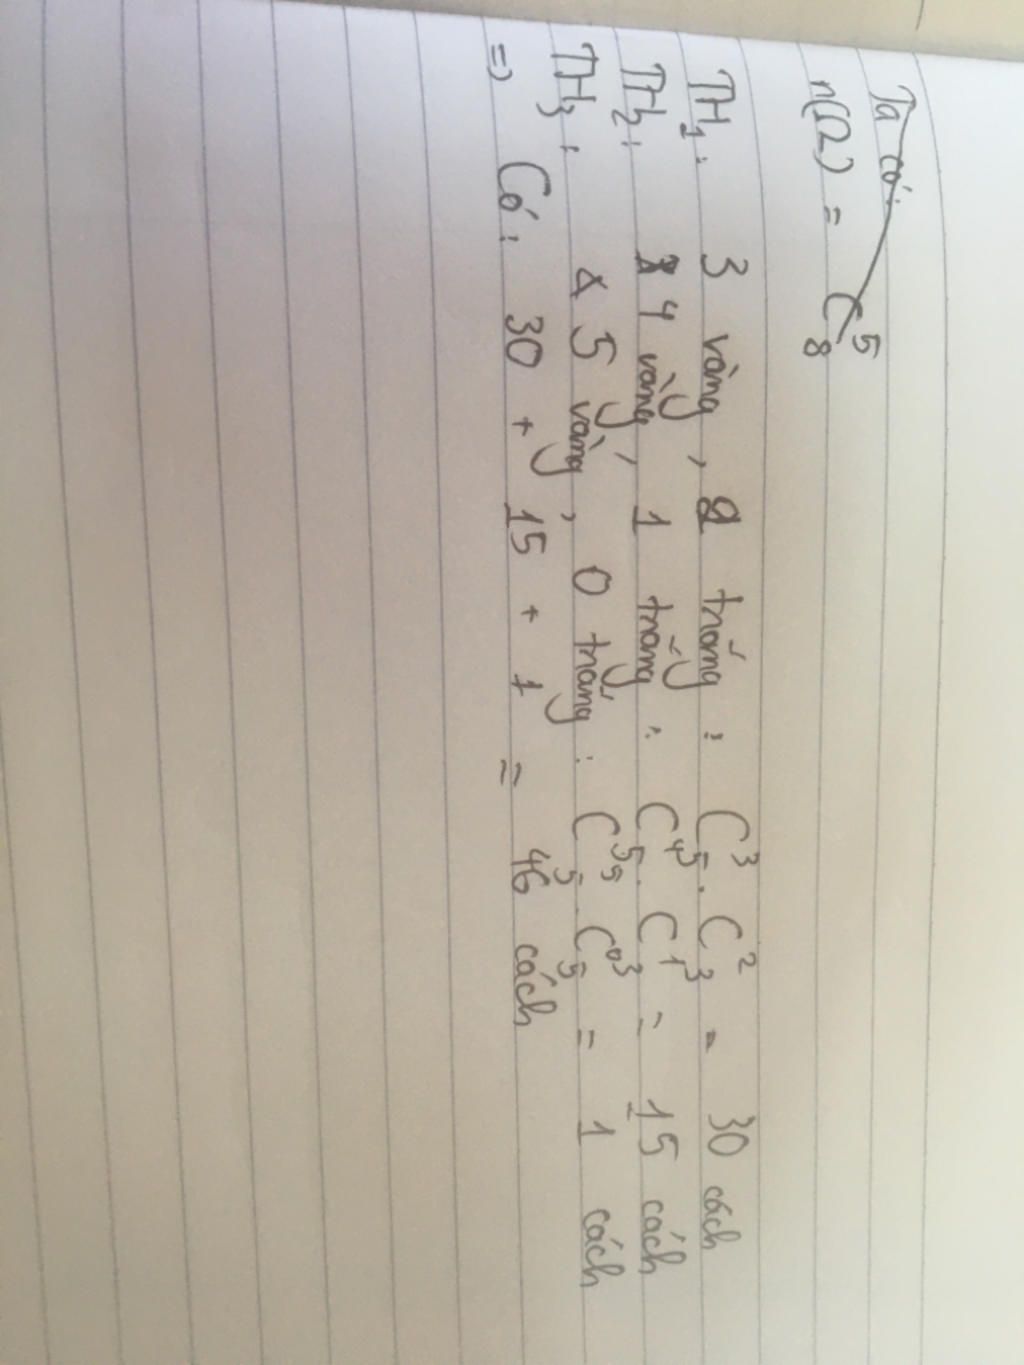 Ta có:
n(Ω) = C⁵₈
TH₁: 3 vàng, 2 trắng: C³₅ . C²₃ = 30 cách
TH₂: 4 vàng, 1 trắng: C⁴₅ . C¹₃ = 15 cách
TH₃: 5 vàng, 0 trắng: C⁵₅ . C⁰₃ = 1 cách
=> Có: 30 + 15 + 1 = 46 cách